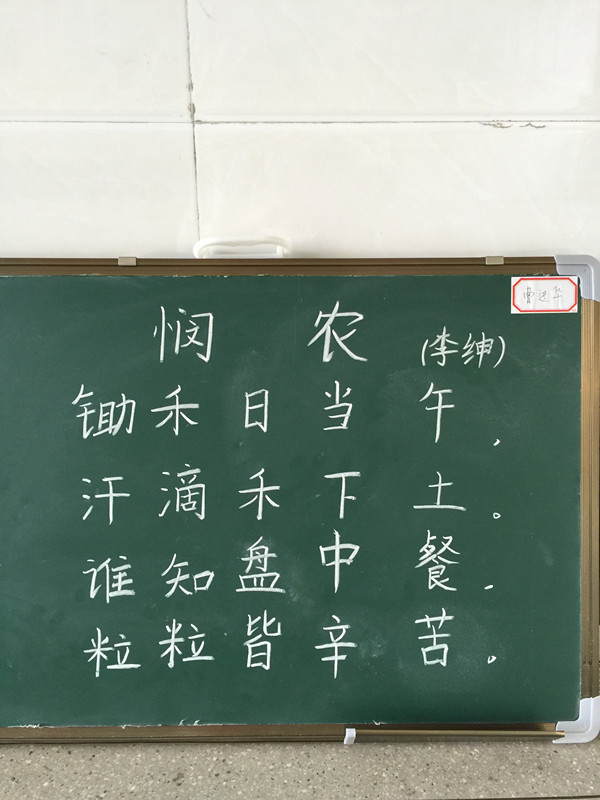 悯农(李绅)
锄禾日当午，
汗滴禾下土。
谁知盘中餐，
粒粒皆辛苦。